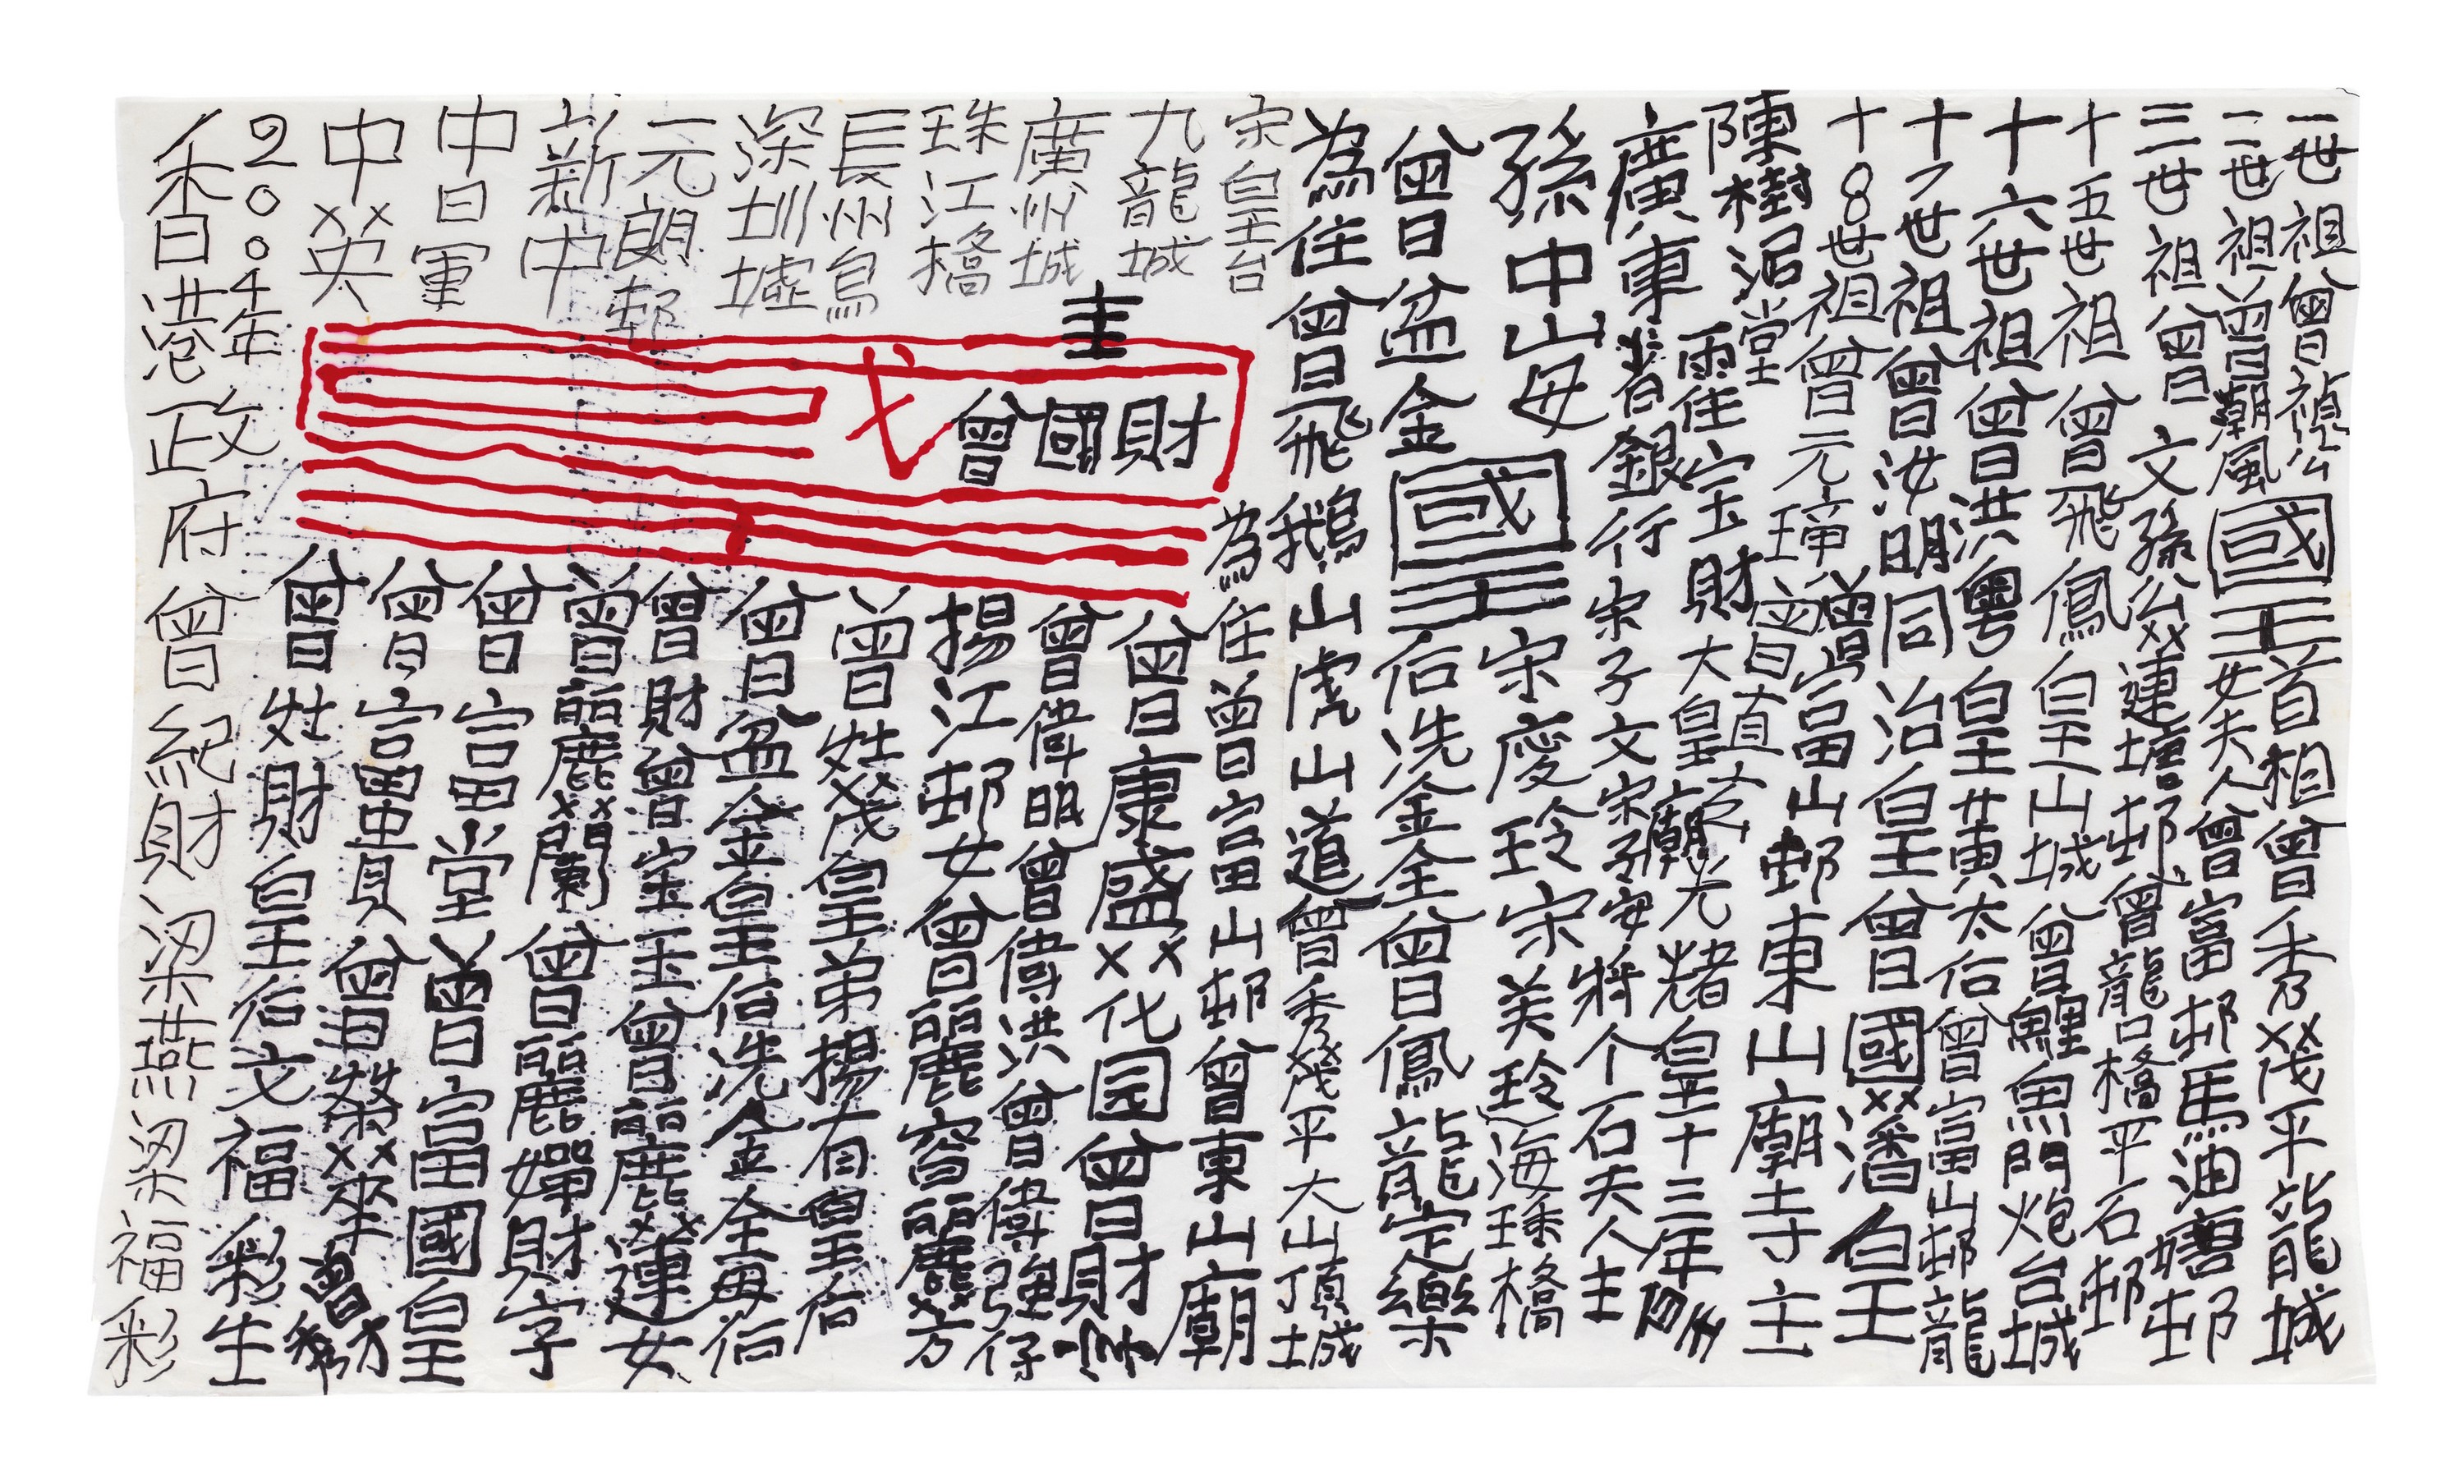 一世祖曾禎公
二世祖曾潮風
國王
首相曾秀茂平龍城
女夫人曾富邨馬油塘邨
三世祖曾文孫公連塘邨曾龍口橋平石邨
十五世祖曾飛鳳皇上山城曾鯉魚門炮台城
十六世祖曾洪粵皇黃太后曾富山邨龍
十7世祖曾汝明同治皇曾國潘皇
十8世祖曾元璋曾富山邨東山廟寺主
陳樹
堂
宝財大皇廟光緒皇十三年
廣東省銀行宋子文宋子安將介石夫人主
孫中山母
曾盆金
國王
宋慶玲宋美玲海珠橋
后冼金全曾鳳龍定樂
為住曾飛鵝山虎山道曾秀茂平大山頂城
宋皇台
九龍城
廣州城
珠江橋
長州島
深圳墟
元朗邨
新中
中日軍
中英
主
曾國財
為住曾富山邨曾東山廟
曾康盛化园曾財
曾偉明曾偉洪曾偉強仔
揚江邨女曾麗容麗芳
曾姓茂皇弟揚有皇后
曾盆金皇后冼金全母后
曾財曾宝玉曾麗蓮女
曾麗蘭曾麗嬋財字
曾富堂曾富國皇
曾富貴曾榮華曾財
曾姓財皇后文福彩生
2004年
香港政府曾紀財梁燕梁福彩